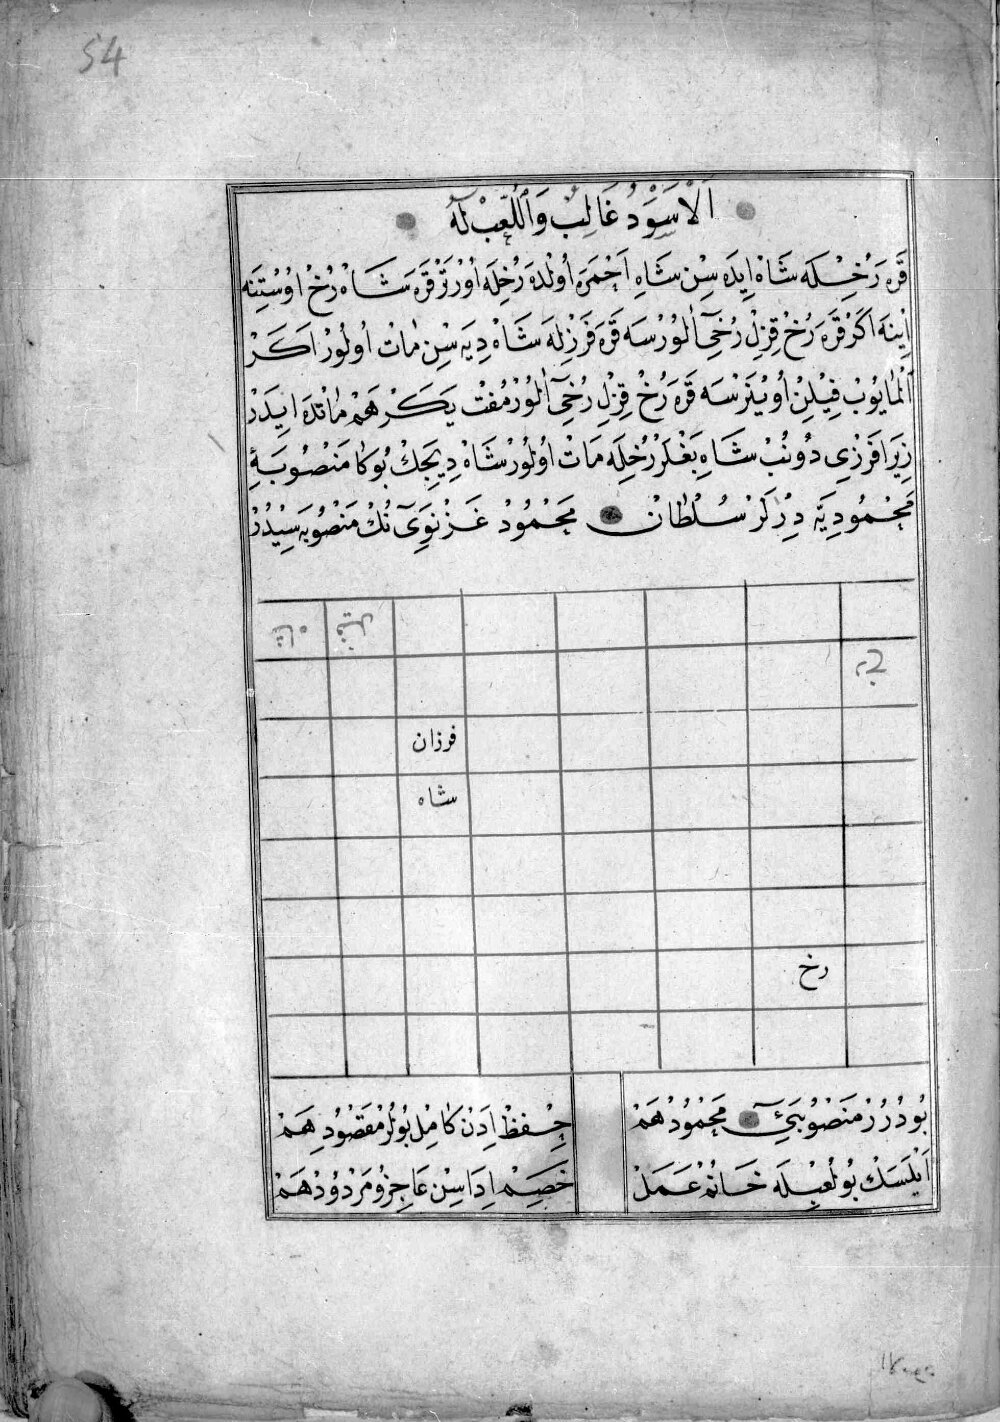 54
اَلْاَسْوَدُ غَالِبْ وَاللَّعِبُ لَهُ
قَرَه رُخِلَه شَاهْ اِيدَه سِنْ شَاهِ اَحْمَرَه اُولْدَه رُخِلَه اُورْتَرْ قَرَه شَاهْ رُخْ اُوسْتِنَه
اِينَه اَكَرْ قَرَه رُخْ قِزِلْ رُخِي اٰلُورْسَه قَرَه فَرْزِلَه شَاهْ دِيَه سِنْ مَاتْ اُولُورْ اَكَرْ
اٰلْمَايُوبْ فِيلِنْ اُويْنَرْسَه قَرَه رُخْ قِزِلْ رُخِي اٰلُورْ مُفْتْ يَكَرْ هَمْ مَاتْدَه اِيدَرْ
زِيرَا فَرْزِي دُونُبْ شَاهِ بَغْلَرْ رُخِلَه مَاتْ اُولُورْ شَاهْ دِيجِكْ بُوكَا مَنْصُوبَهِٔ
مَحْمُودِيَّه دِرْلَرْ سُلْطَانْ مَحْمُودْ غَزْنَوِي نُكْ مَنْصُوبَه سِيدُرْ
شاه فيل
فرزان
شاه
رخ
بُودُرُرْ مَنْصُوبَهِٔ مَحْمُودْ هَمْ حِفْظْ اِدَنْ كَامِلْ بُولُرْ مَقْصُودْ هَمْ
اَيْلَسَكْ بُو لُعْبِلَه خَانَمْ عَمَلْ خَصْمِ اِدَاسِنْ عَاجِزُ و مَرْدُودْ هَمْ